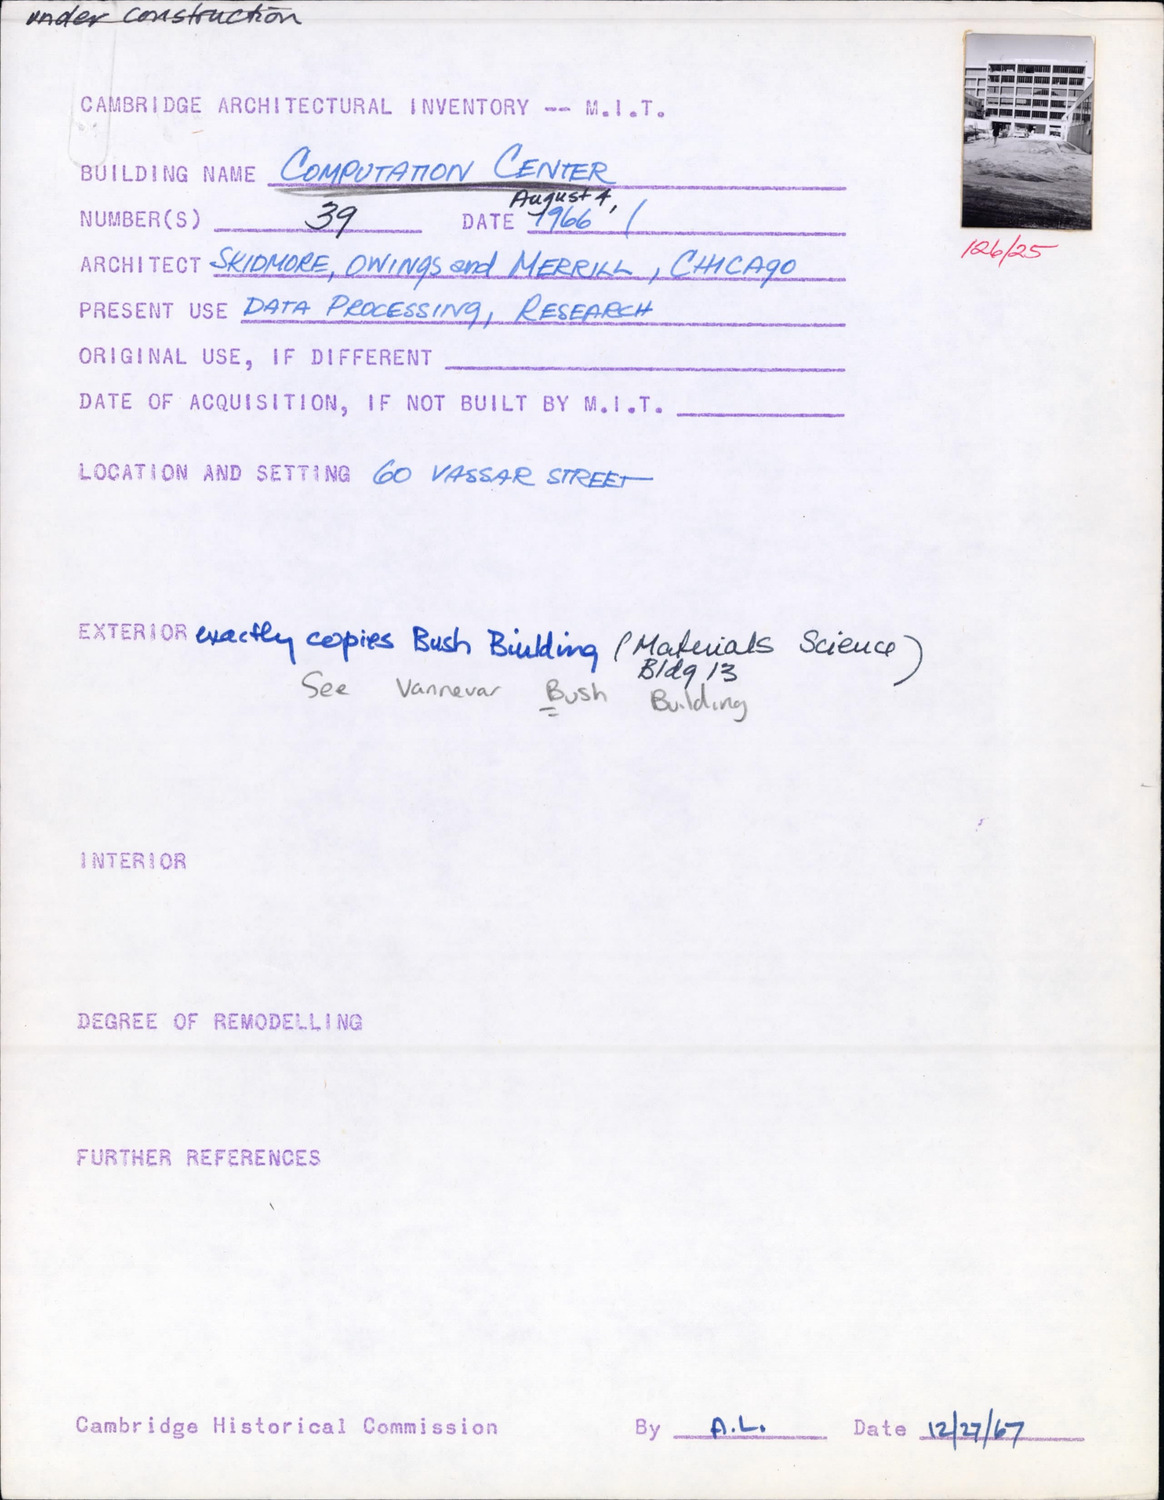 under construction
CAMBRIDGE ARCHITECTURAL INVENTORY -- M.I.T.
BUILDING NAME COMPUTATION CENTER
NUMBER(S) 39 DATE August 4, 1966
ARCHITECT SKIDMORE, OWINGS and MERRILL, CHICAGO
PRESENT USE DATA PROCESSING, RESEARCH
ORIGINAL USE, IF DIFFERENT
DATE OF ACQUISITION, IF NOT BUILT BY M.I.T.
LOCATION AND SETTING 60 VASSAR STREET
126/25
EXTERIOR exactly copies Bush Building (Materials Science)
Bldg 13
See Vannevar Bush Building
INTERIOR
DEGREE OF REMODELLING
FURTHER REFERENCES
Cambridge Historical Commission By A.L. Date 12/27/67